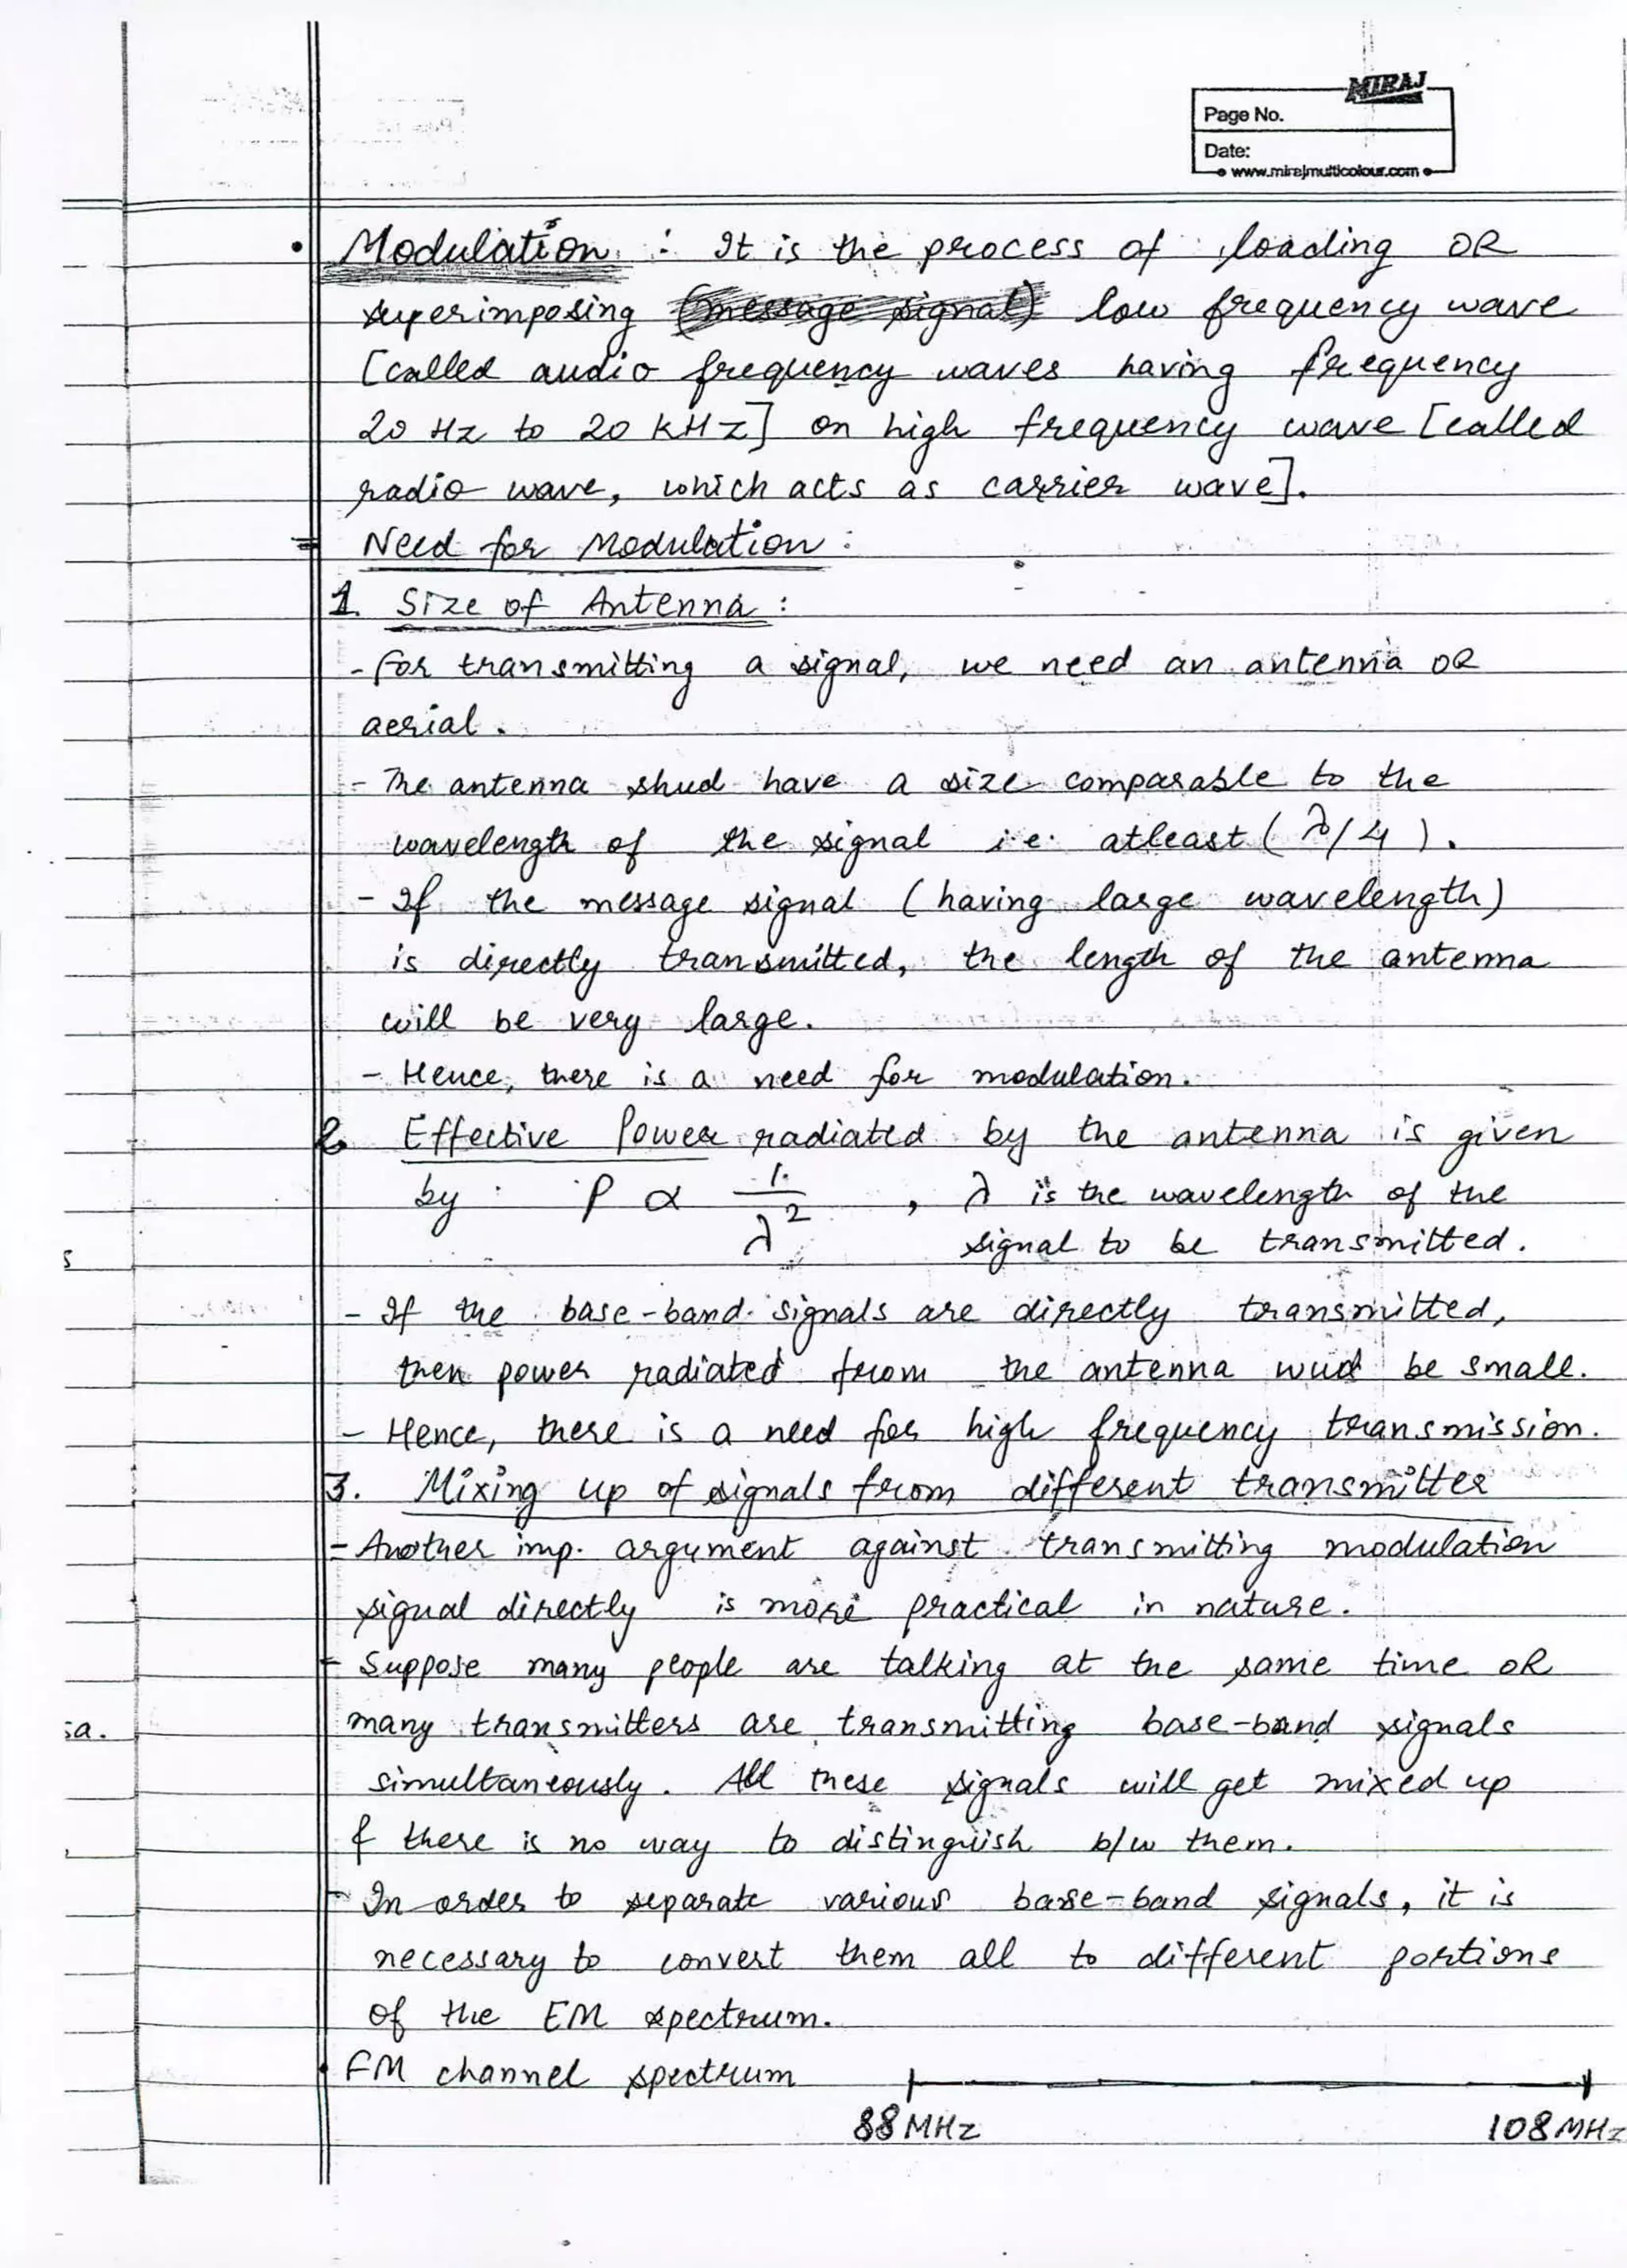 MIRAJ
Page No.
Date:
www.mirajmulticolour.com
• Modulation : It is the process of loading OR
superimposing (message signal) low frequency wave
[called audio frequency waves having frequency
20 Hz to 20 kHz] on high frequency wave [called
radio wave, which acts as carrier wave].
Need for Modulation :
1. Size of Antenna :
- For transmitting a signal, we need an antenna OR
aerial.
- The antenna shud have a size comparable to the
wavelength of the signal i.e. atleast (λ/4).
- If the message signal (having large wavelength)
is directly transmitted, the length of the antenna
will be very large.
- Hence, there is a need for modulation.
2. Effective Power radiated by the antenna is given
by P ∝ 1/λ², λ is the wavelength of the
signal to be transmitted.
s
- If the base-band signals are directly transmitted,
then power radiated from the antenna wud be small.
- Hence, there is a need for high frequency transmission.
3. Mixing up of signals from different transmitter
- Another imp. argument against transmitting modulation
signal directly is more practical in nature.
- Suppose many people are talking at the same time OR
sa.
many transmitters are transmitting base-band signals
simultaneously. All these signals will get mixed up
& there is no way to distinguish b/w them.
- In order to separate various base-band signals, it is
necessary to convert them all to different portions
of the EM spectrum.
• FM channel spectrum
88 MHz 108 MHz